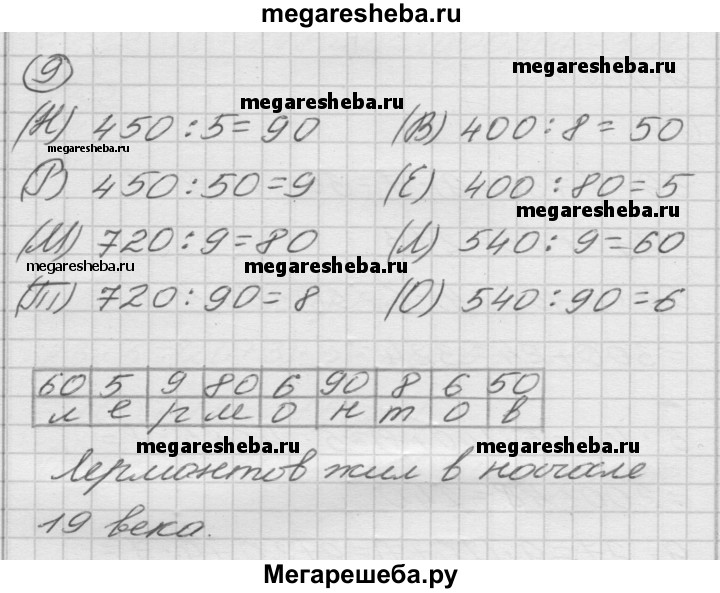 megaresheba.ru
9
megaresheba.ru
megaresheba.ru
(Н) 450:5=90 (В) 400:8=50
megaresheba.ru
(Р) 450:50=9 (Е) 400:80=5
megaresheba.ru
(М) 720:9=80 (Л) 540:9=60
megaresheba.ru megaresheba.ru
(Т) 720:90=8 (О) 540:90=6
60 5 9 80 6 90 8 6 50
л е р м о н т о в
megaresheba.ru megaresheba.ru
Лермонтов жил в начале
19 века.
Мегарешеба.ру